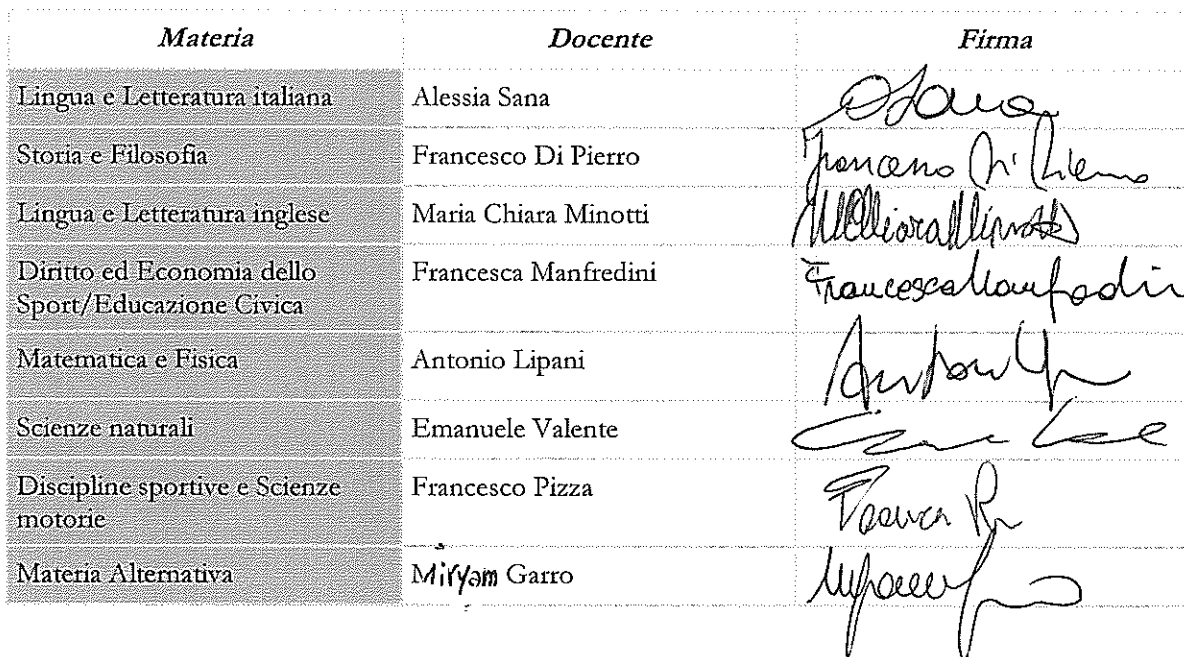 Materia Docente Firma
Lingua e Letteratura italiana Alessia Sana
Storia e Filosofia Francesco Di Pierro Francesco Di Pierro
Lingua e Letteratura inglese Maria Chiara Minotti
Diritto ed Economia dello Francesca Manfredini Francesca Manfredin
Sport/Educazione Civica
Matematica e Fisica Antonio Lipani
Scienze naturali Emanuele Valente
Discipline sportive e Scienze Francesco Pizza
motorie
Materia Alternativa Miryam Garro